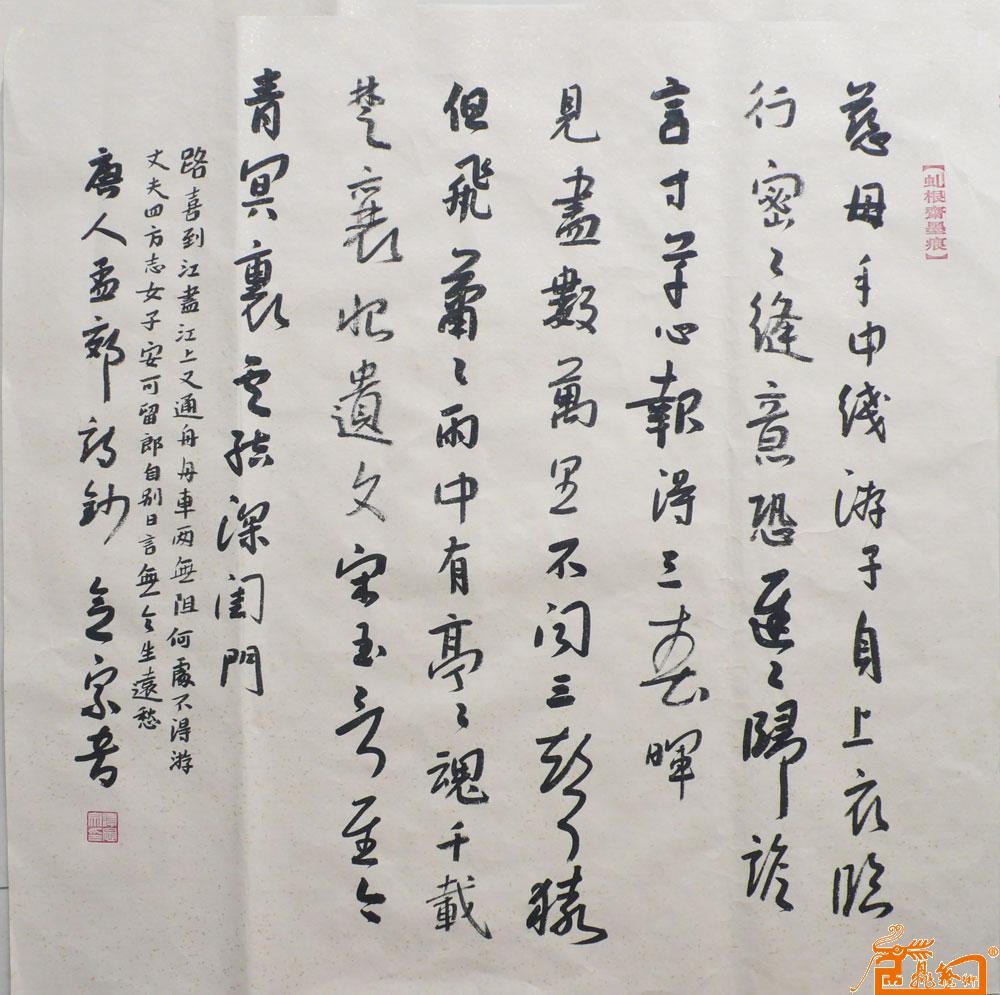 【虬根齋墨痕】
慈母手中綫游子身上衣臨
行密々縫意恐遲々歸誰
言寸草心報得三春暉
見盡數萬里不聞三聲猿
但飛蕭々雨中有亭々魂千載
楚襄恨遺文宋玉言至今
青冥裏雲結深閨門
路喜到江盡江上又通舟舟車兩無阻何處不得游
丈夫四方志女子安可留郎自别日言無令生遠愁
唐人孟郊詩鈔 宗書